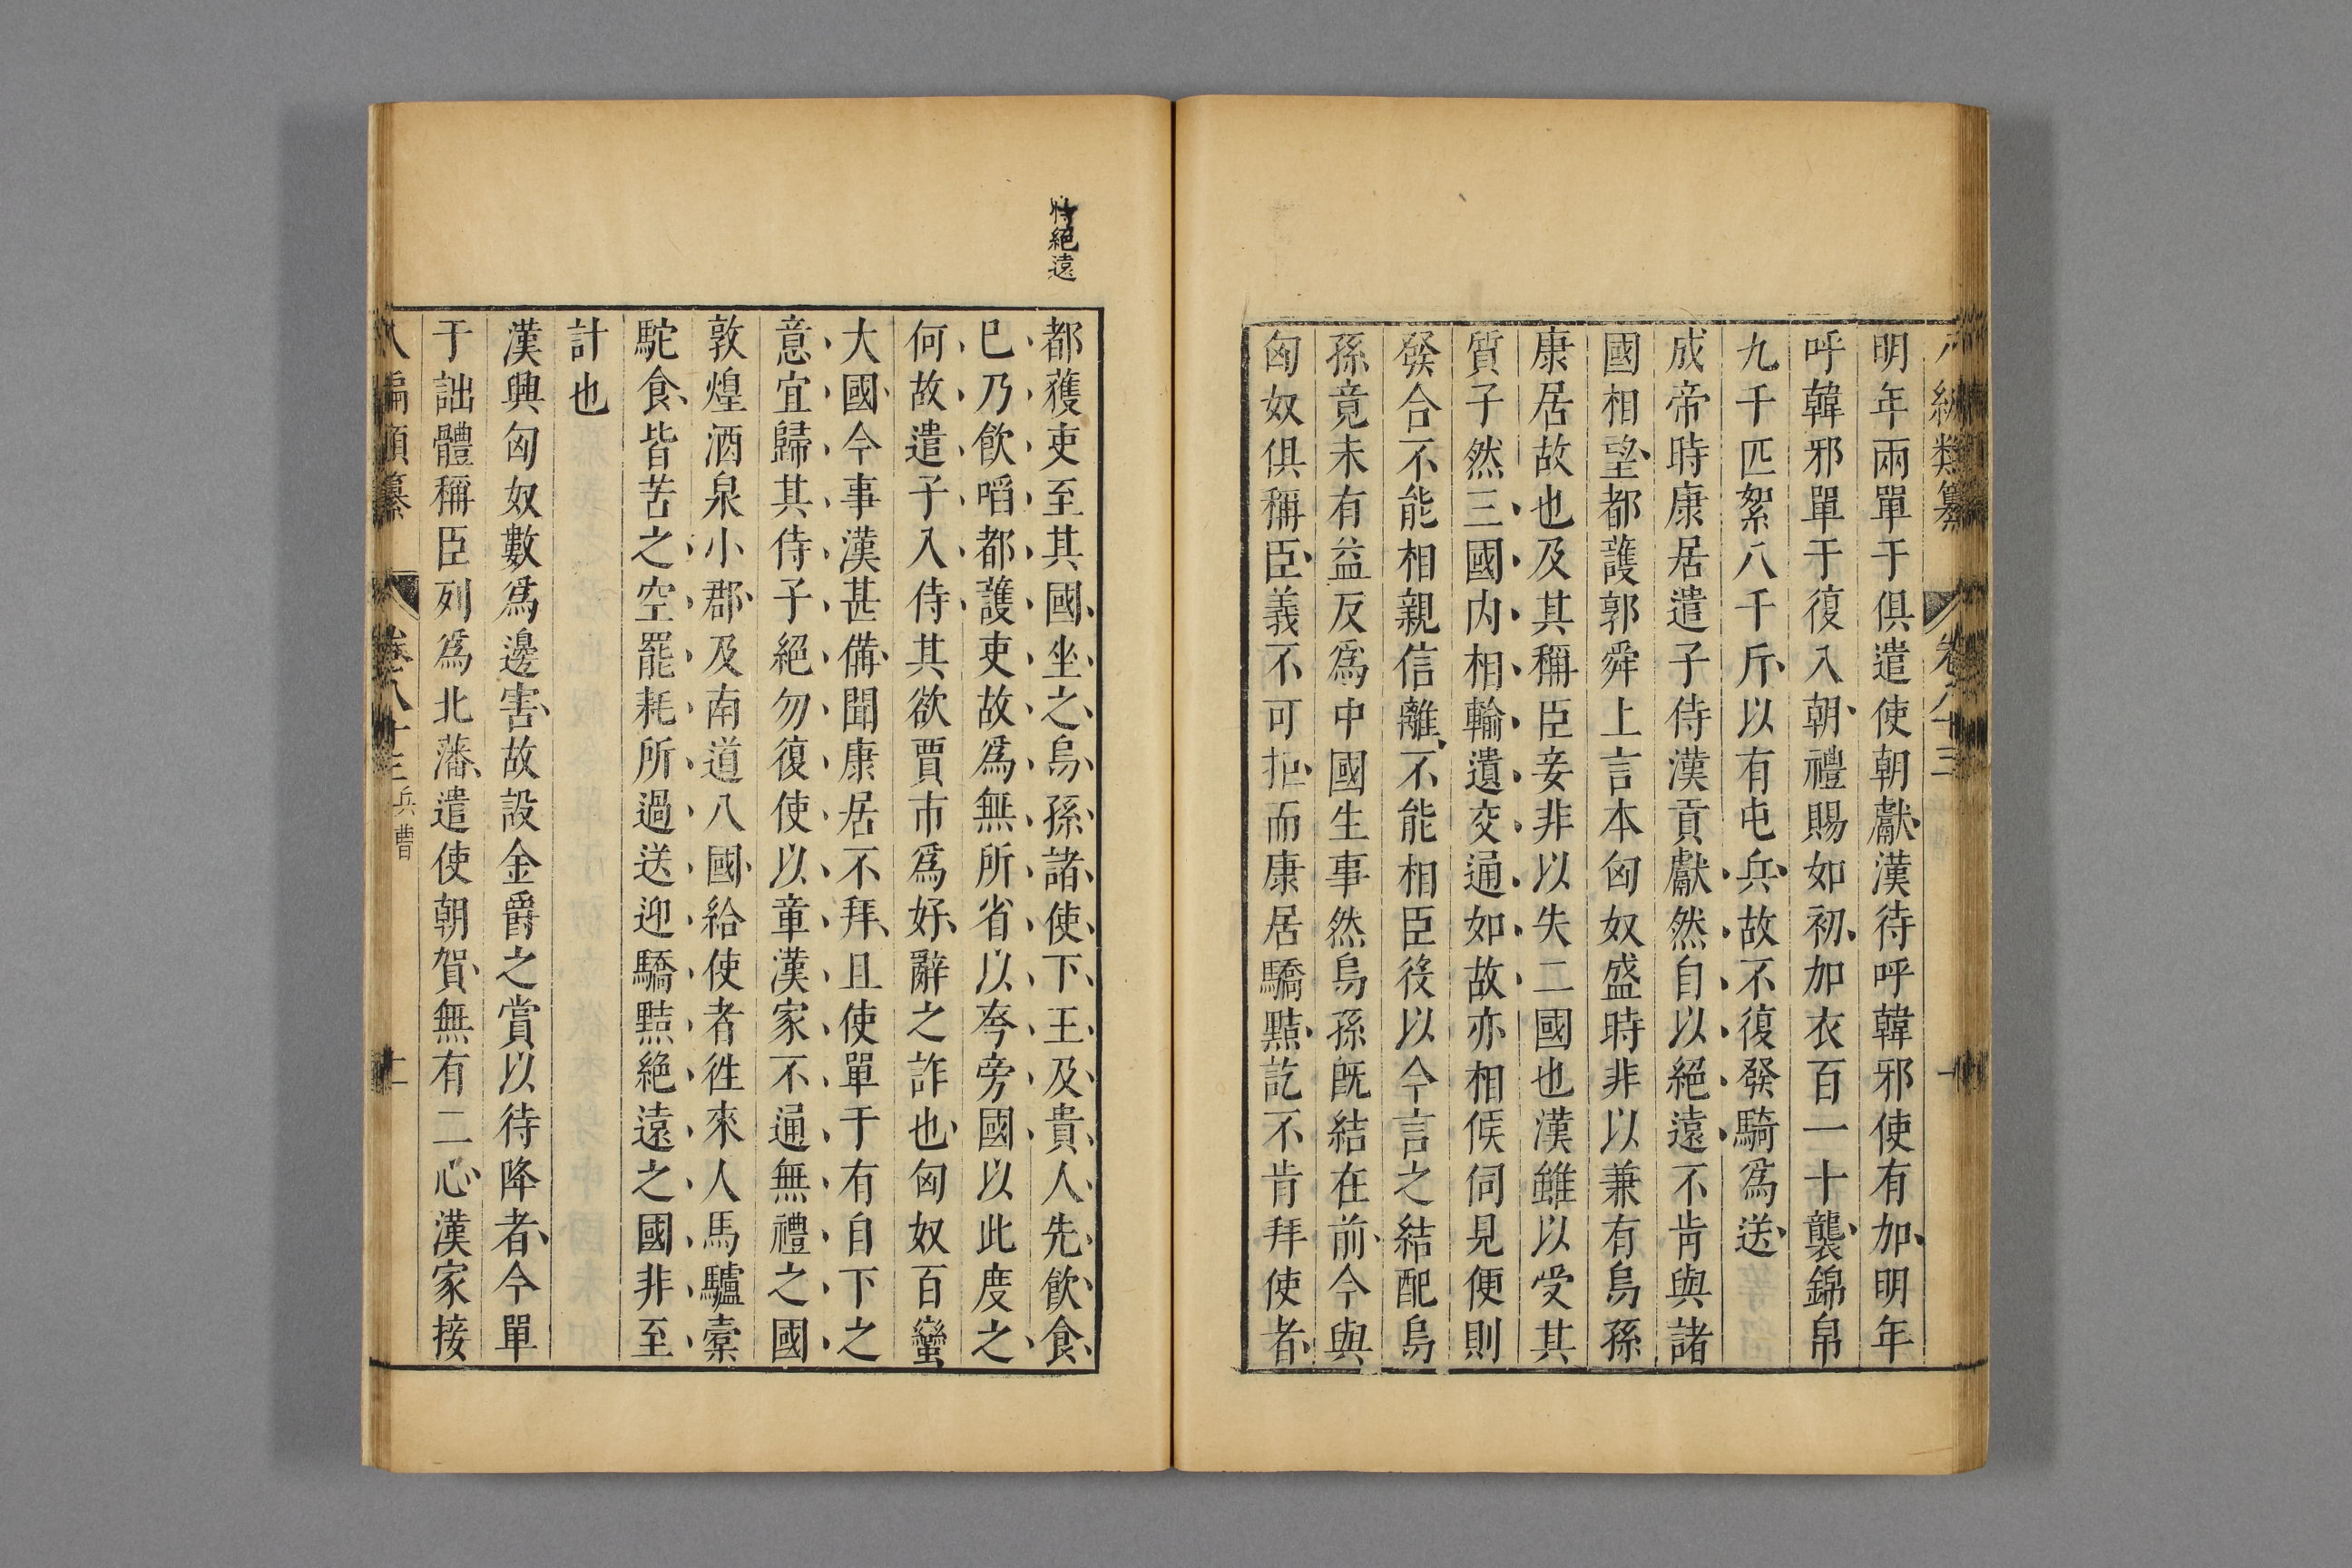 編類纂 卷八十三
明年兩單于俱遣使朝獻漢待呼韓邪使有加明年
呼韓邪單于復入朝禮賜如初加衣百一十襲錦帛
九千匹絮八千斤以有屯兵故不復發騎爲送
成帝時康居遣子侍漢貢獻然自以絕遠不肯與諸
國相望都護郭舜上言本匈奴盛時非以兼有烏孫
康居故也及其稱臣妾非以失二國也漢雖以受其
質子然三國内相輸遺交通如故亦相候伺見便則
發合不能相親信離不能相臣役以今言之結配烏
孫竟未有益反爲中國生事然烏孫既結在前今與
匈奴俱稱臣義不可拒而康居驕黠訖不肯拜使者
恃絕遠
都護吏至其國坐之烏孫諸使下王及貴人先飲食
已乃飲啗都護吏故爲無所省以夸旁國以此度之
何故遣子入侍其欲賈市爲好辭之詐也匈奴百蠻
大國今事漢甚備聞康居不拜且使單于有自下之
意宜歸其侍子絕勿復使以章漢家不通無禮之國
敦煌酒泉小郡及南道八國給使者徃來人馬驢橐
駝食皆苦之空罷耗所過送迎驕黠絕遠之國非至
計也
漢興匈奴數爲邊害故設金爵之賞以待降者今單
于詘體稱臣列爲北藩遣使朝賀無有二心漢家接
八編類纂 卷八十三 兵曹 十一